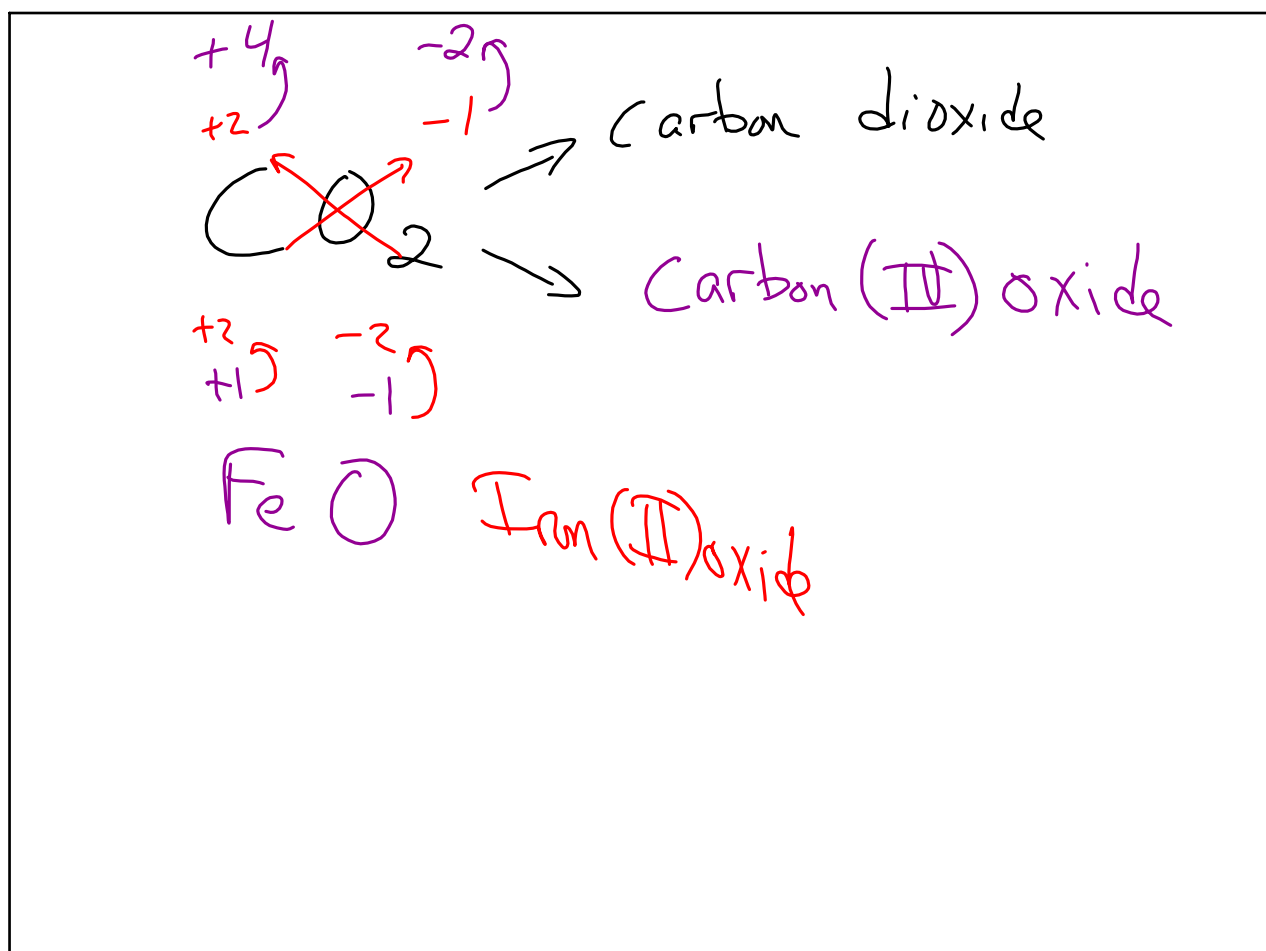 +4 -2
+2 -1
Carbon dioxide
CO2
Carbon (IV) oxide
+2 -2
+1 -1
FeO Iron (II) oxide